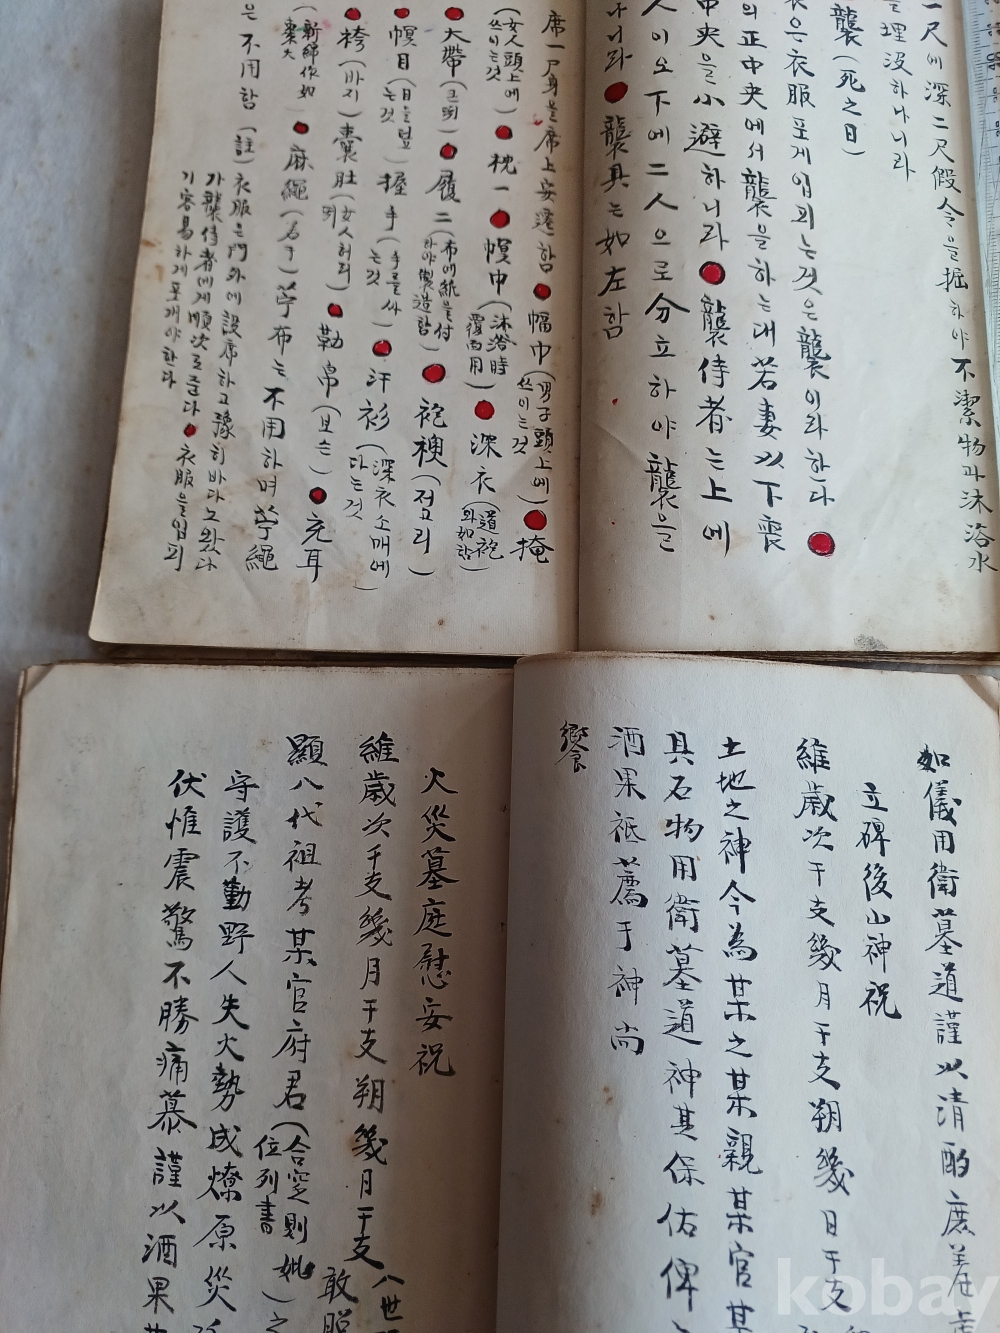 一尺에深二尺假令을掘하야不潔物과沐浴水
를埋没하나니라
襲(死之日)
衣은衣服포게입피는것은襲이라한다●
의正中央에서襲을하는대若妻以下喪
中央을小避하니라●襲侍者는上에
人이오下에二人으로分立하야襲을
나니라●襲具는如左함
席一尸身을席上安遷함●幅巾(男子頭上에쓰이는것)●掩
(女人頭上에쓰이는것)●枕一●幎巾(沐浴時覆面用)●深衣(道袍와如함)
●大帶(큰띄)●履二(布에紙을付하야製造함)●袍襖(젹고리)
●幎目(目을덮는것)握手(手를싸는것)●汗衫(深衣소매에다는것)
●袴(바지)囊肚(女人허리띄)●勒帛(보슨)●充耳
(新綿作如棗大)●麻繩(了)苧布는不用하며苧繩
은不用함(註)衣服은門外에設席하고豫히바다노왔다
가襲侍者에게順次로준다●衣服을입피
기容易하게포개야한다
如儀用衛墓道謹以清酌庶羞
立碑後山神祝
維歲次干支幾月干支朔幾日干支
土地之神今為某之某親某官某
具石物用衛墓道神其保佑俾
酒果祗薦于神尚
饗
火災墓庭慰安祝
維歲次干支幾月干支朔幾月干支八世
敢昭
顯八代祖考某官府君(合窆則妣位列書)之
守護不勤野人失火勢成燎原災
伏惟震驚不勝痛慕謹以酒果
kobay